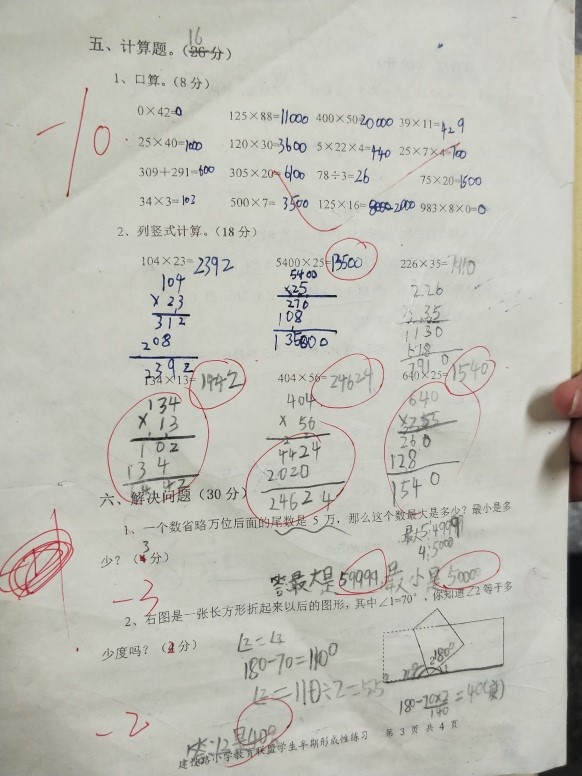 16
五、计算题。(26分)
1、口算。(8分)
0×42=0 125×88=11000 400×50=20000 39×11=429
25×40=1000 120×30=3600 5×22×4=440 25×7×4=700
309+291=600 305×20=6100 78÷3=26 75×20=1500
34×3=102 500×7=3500 125×16=2000 983×8×0=0
-10
2、列竖式计算。(18分)
104×23=2392 5400×25=13500 226×35=7910
104 5400 226
×23 ×25 ×35
312 270 1130
208 108 678
2392 135000 7910
134×13=1942 404×56=24624 640×25=1540
134 404 640
×13 ×56 ×25
102 4424 260
134 2020 128
24624 1540
六、解决问题(30分)
1、一个数省略万位后面的尾数是 5 万，那么这个数最大是多少？最小是多
少？(3分)
答最大是59999最小是50000
-3
2、右图是一张长方形折起来以后的图形，其中∠1=70°，你知道∠2等于多
少度吗？(分)
∠2=∠3
180-70=110°
∠2=110÷2=55
180°
2
1
180-70×2=40(度)
140
-2
建设路小学教育联盟学生半期形成性练习 第 3 页 共 4 页